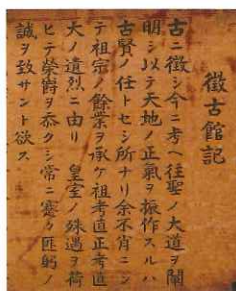 徴古館記
古ニ徴シ今ニ考ヘ往聖ノ大道ヲ闡
明シ以テ天地ノ正氣ヲ振作スルハ
古賢ノ任トセシ所ナリ余不肖ニシ
テ祖宗ノ餘業ヲ承ケ祖考直正考直
大ノ遺烈ニ由リ 皇室ノ殊遇ヲ荷
ヒテ榮爵ヲ忝クシ常ニ蹇々匪躬ノ
誠ヲ致サント欲ス